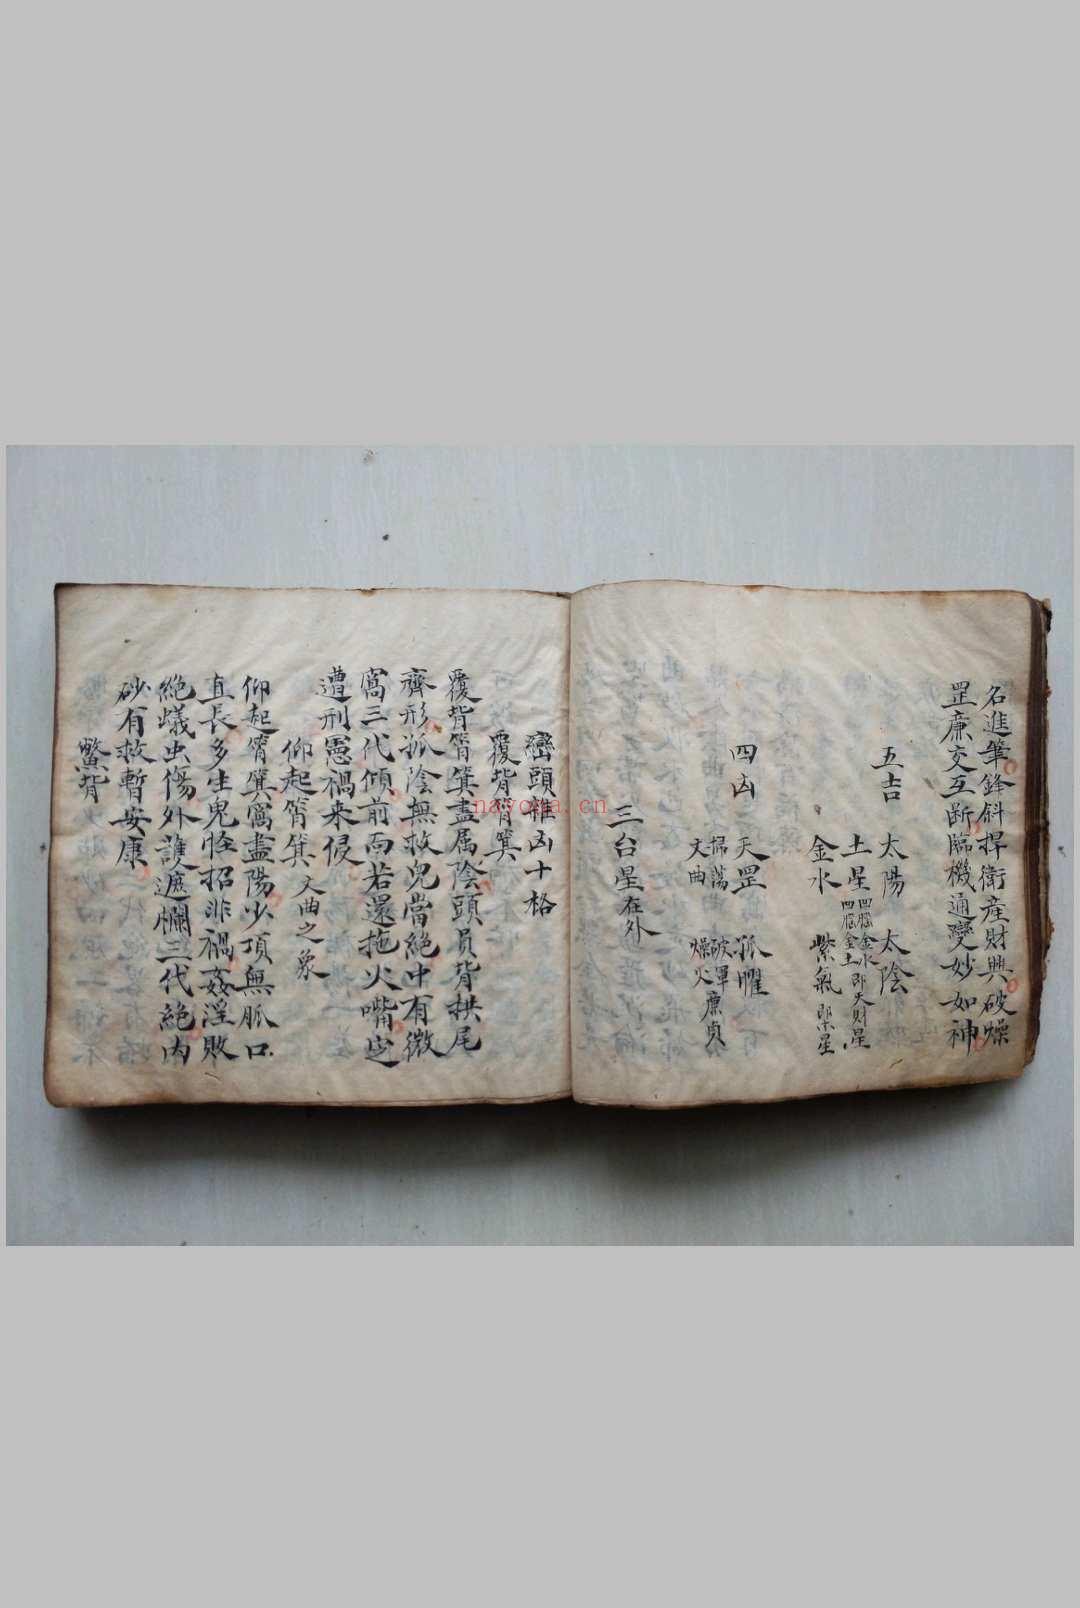 名進筆鋒斜捍衛產財興破燥
罡廉交互断臨機通變妙如神
五吉 太陽 太陰
土星四腦金水即天財星
四腦金土
金水 紫氣即渠星
四凶 天罡 孤曜
掃蕩 破軍廉貞
文曲 燥火
三台星在外
巒頭雜凶十格
覆背筲箕
覆背筲箕盡属陰頭員背拱尾
齊形孤陰無救児當絕中有微
窩三代傾前面若還拖火嘴必
遭刑憲禍来侵
仰起筲箕文曲之象
仰起筲箕窩盡陽少頂無脈口
直長多生鬼怪招非禍姦淫敗
絕蟻虫傷外護遮欄三代絕內
砂有救暫安康
鱉背
nayona.cn